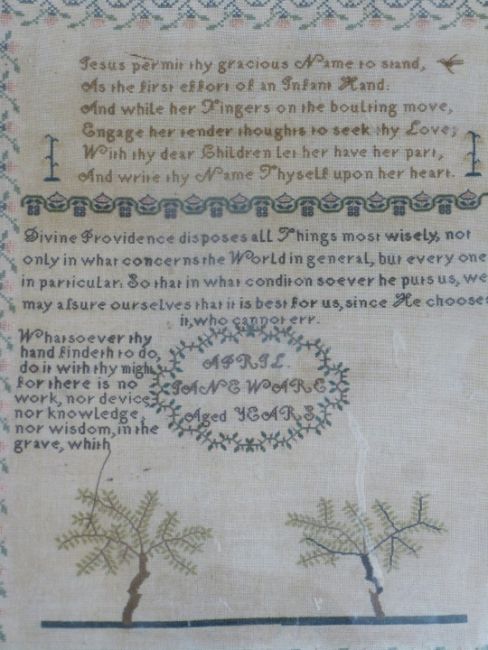 Jesus permit thy gracious Name to stand,
As the first effort of an Infant Hand:
And while her Fingers on the boulting move,
Engage her tender thoughts to seek thy Love;
With thy dear Children let her have her part,
And write thy Name Thyself upon her heart.
Divine Providence disposes all Things most wisely, not
only in what concerns the World in general, but every one
in particular. So that in what conditon soever he puts us, we
may aſsure ourselves that it is best for us, since He chooses
it, who cannot err.
Whatsoever thy
hand findeth to do,
do it with thy might
for there is no
work, nor device,
nor knowledge,
nor wisdom, in the
grave, whith
APRIL.
JANE WARE
Aged YEARS